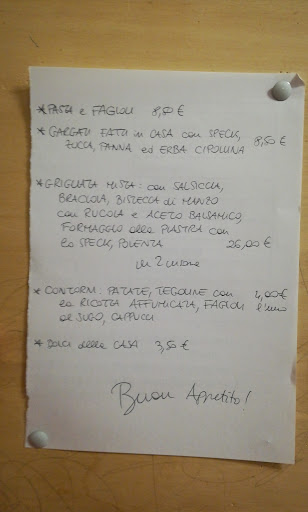 * PASTA e FAGIOLI 8,50 €
* GARGATI FATTI in CASA con SPECK, ZUCCA, PANNA ed ERBA CIPOLLINA 8,50 €
* GRIGLIATA MISTA: con SALSICCIA,
BRACIOLA, BISTECCA di MANZO
con RUCOLA e ACETO BALSAMICO,
FORMAGGIO alla PIASTRA con
lo SPECK, POLENTA 26,00 €
in 2 persone
* CONTORNI: PATATE, TEGOLINE con 4,00 €
la RICOTTA AFFUMICATA, FAGIOLI l'uno
al SUGO, CAPPUCCI
* DOLCI della CASA 3,50 €
Buon Appetito!